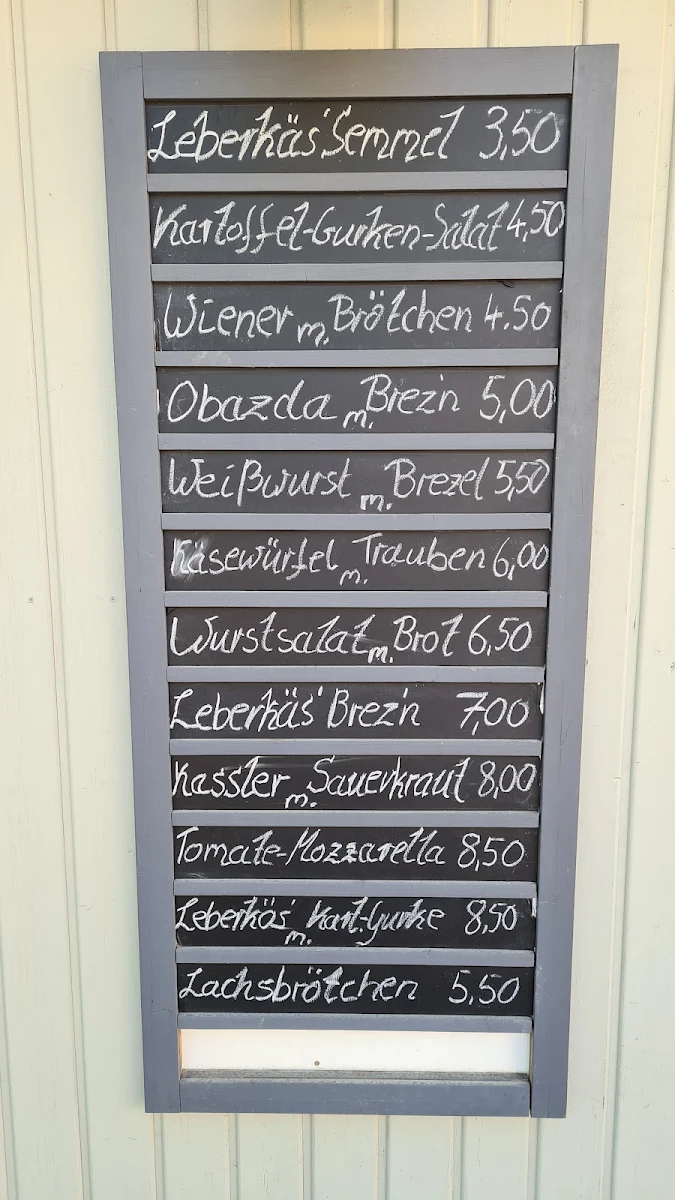 Leberkäs' Semmel 3,50
Kartoffel-Gurken-Salat 4,50
Wiener m. Brötchen 4.50
Obazda m. Brez'n 5,00
Weißwurst m. Brezel 5,50
Käsewürfel m. Trauben 6,00
Wurstsalat m. Brot 6,50
Leberkäs' Brez'n 7,00
Kassler m. Sauerkraut 8,00
Tomate-Mozzarella 8,50
Leberkäs' m. Kart.-Gurke 8,50
Lachsbrötchen 5,50